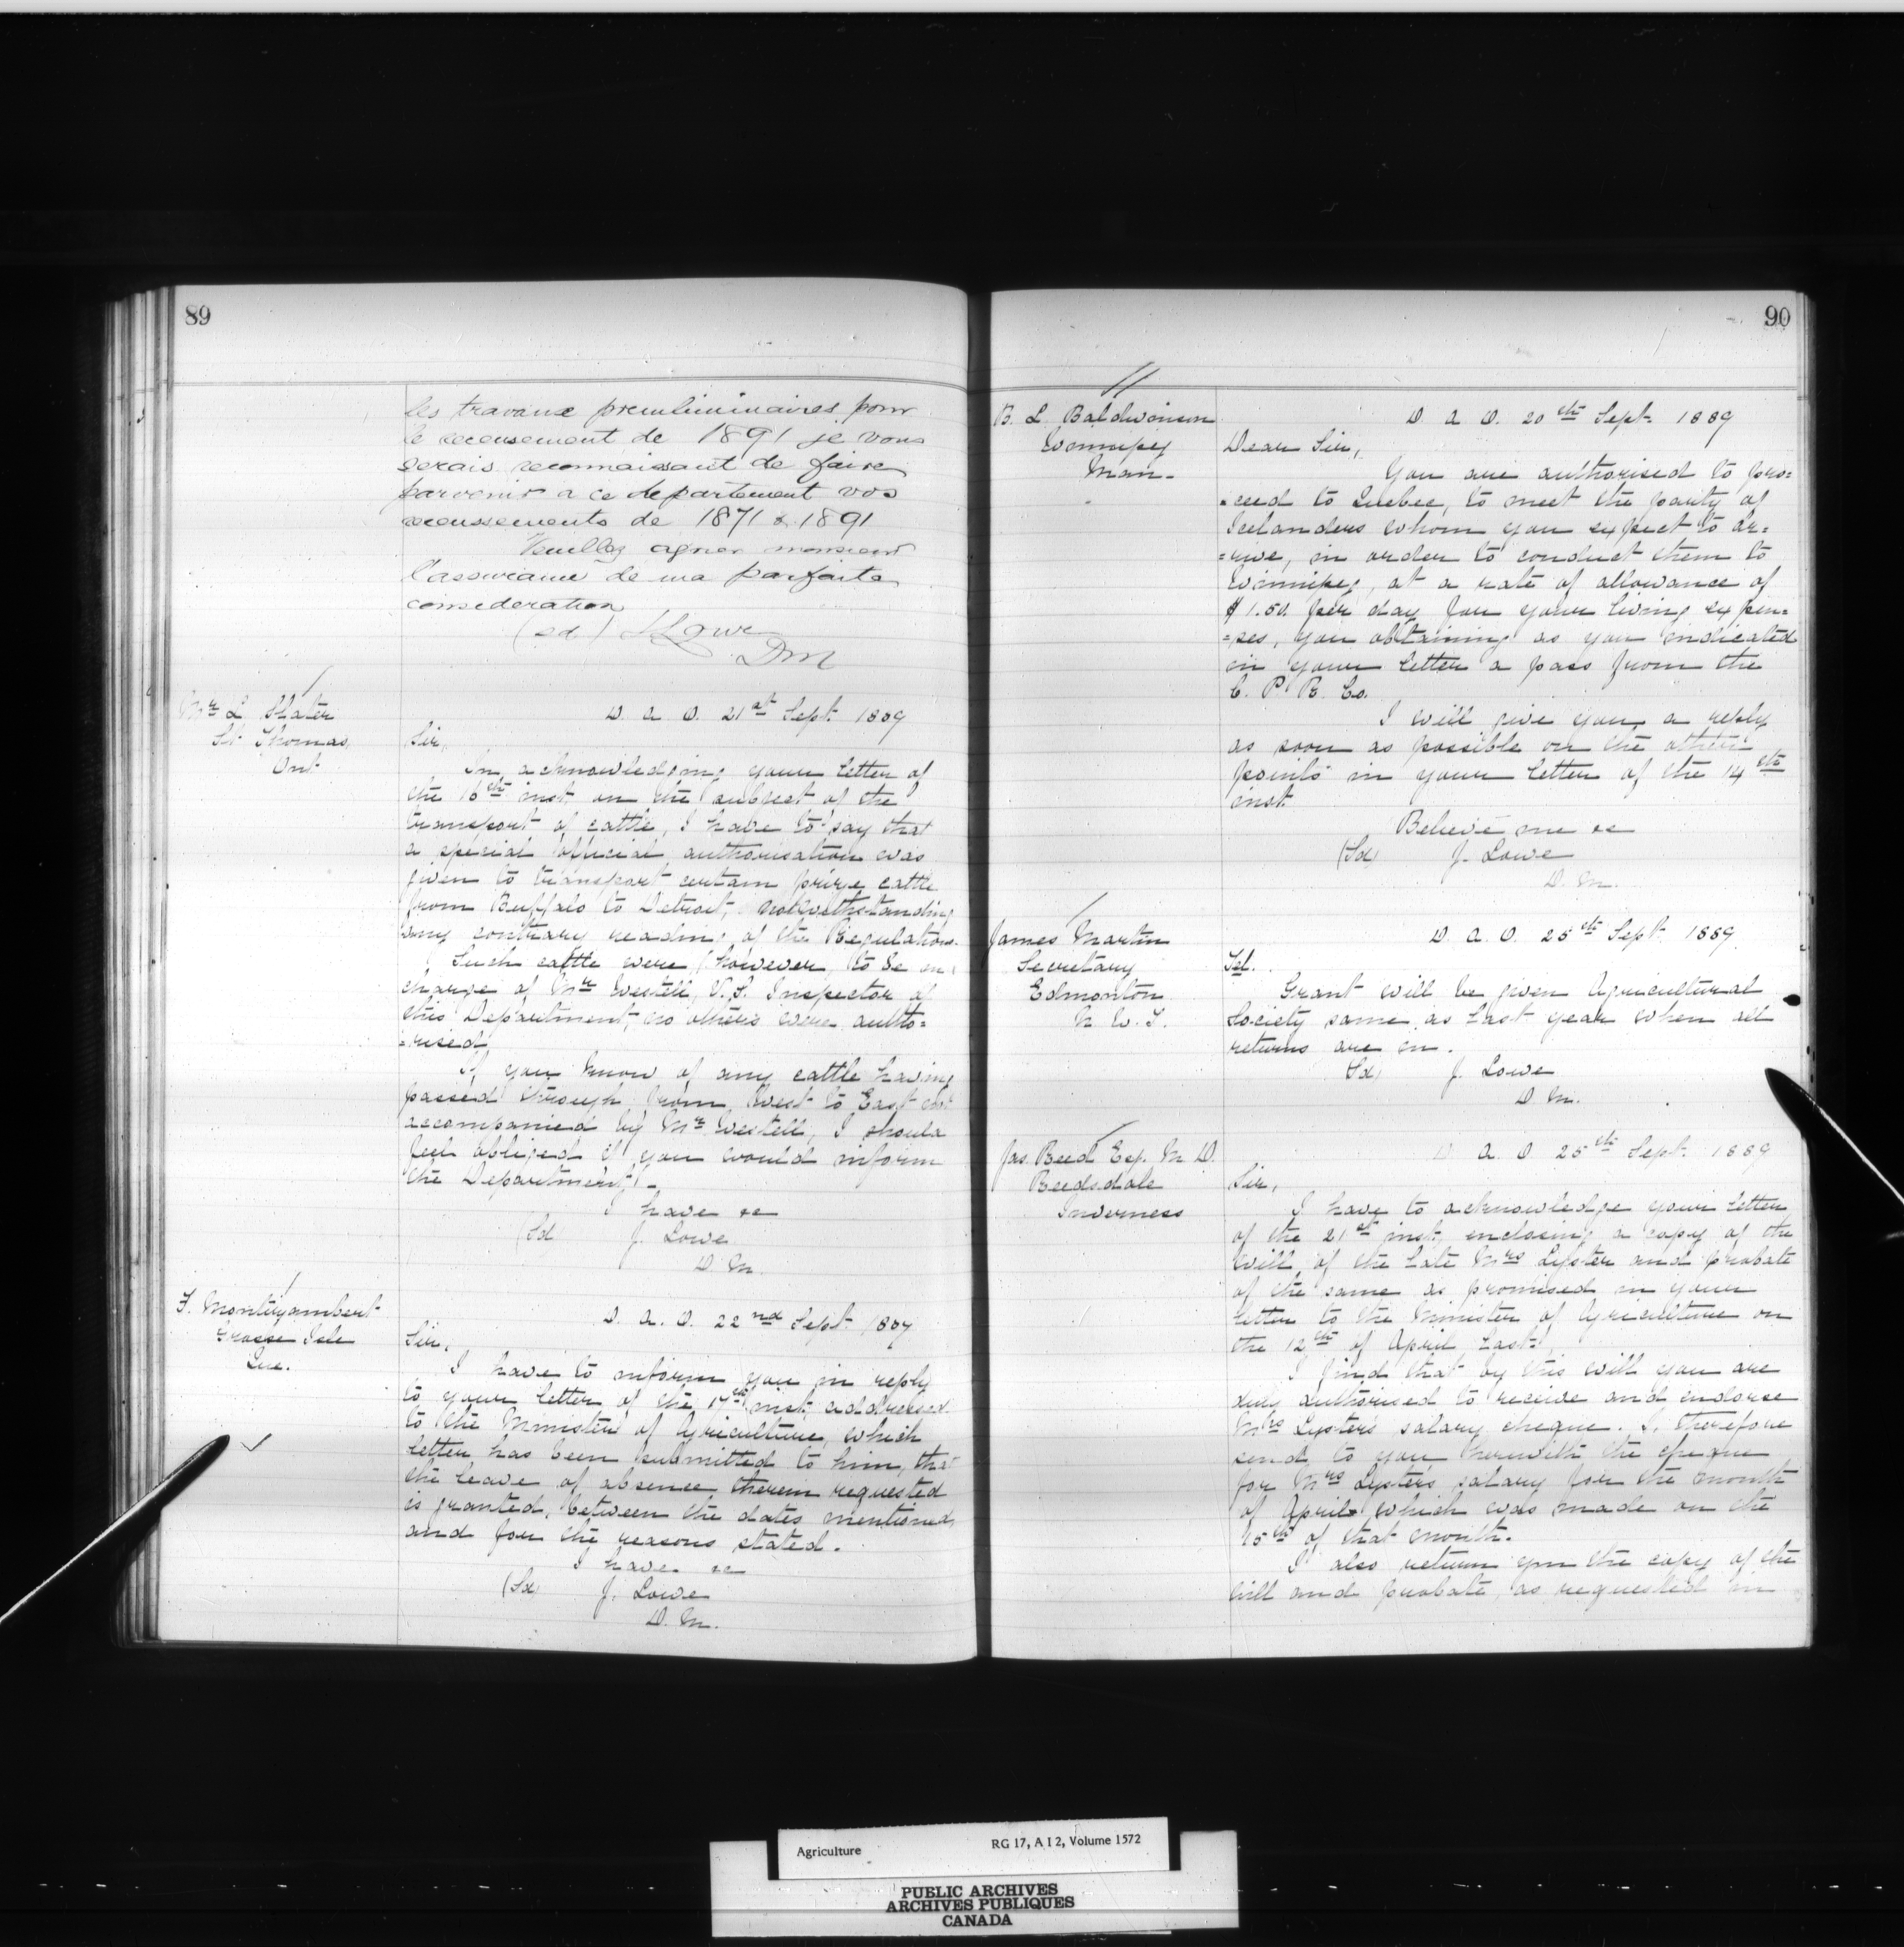 89
les travaux premliminaires pour
le recensement de 1891 je vous
serais reconnaissant de faire
parvenir a ce departement vos
recenssements de 1871 & 1891
Veuillez agreer monsieur
l'assurance de ma parfaite
consideration
(sd) J Lowe
DM
Mr L Slater
St Thomas,
Ont
D. A. O. 21st Sept. 1889
Sir,
In acknowledging your letter of
the 16th inst. on the subject of the
transport of cattle, I have to say that
a special official authorisation was
given to transport certain prize cattle
from Buffalo to Detroit, notwithstanding
any contrary reading of the Regulations.
Such cattle were, however, to be in
charge of Mr Westell, V.S. Inspector of
this Department, no others were autho=
=rised.
If you know of any cattle having
passed through from West to East not
accompanied by Mr Westell, I should
feel obliged if you would inform
the Department.-
I have &c
(Sd) J. Lowe
D. M.
F. Montizambert
Grosse Isle
Que.
D. A. O. 22nd Sept. 1889
Sir,
I have to inform you in reply
to your letter of the 17th inst. addressed
to the Minister of Agriculture, which
letter has been submitted to him, that
the leave of absence therein requested
is granted, between the dates mentioned
and for the reasons stated.
I have &c
(Sd) J. Lowe
D. M.
90
B. L. Baldwinson
Winnipeg
Man-
D. A. O. 20th Sept. 1889
Dear Sir,
You are authorised to pro=
=ceed to Quebec, to meet the party of
Icelanders whom you expect to ar=
=rive, in order to conduct them to
Winnipeg, at a rate of allowance of
$1.50. per day for your living expen=
=ses, you obtaining as you indicated
in your letter a pass from the
C. P. R. Co.
I will give you a reply
as soon as possible on the other
points in your letter of the 14th
inst.
Believe me &c
(Sd) J. Lowe
D. M.
James Martin
Secretary
Edmonton
N. W. T.
D. A. O. 25th Sept. 1889
Tel.
Grant will be given Agricultural
Society same as last year when all
returns are in.
(Sd) J. Lowe
D. M.
Jas. Reed Esq. M. D.
Reedsdale
Inverness
D. A. O. 25th Sept. 1889
Sir,
I have to acknowledge your letter
of the 21st inst. enclosing a copy of the
will of the late Mrs Lyster and probate
of the same as promised in your
letter to the Minister of Agriculture on
the 12th of April last.
I find that by this will you are
duly authorised to receive and endorse
Mrs Lyster's salary cheque. I, therefore
send to you herewith the cheque
for Mrs Lyster's salary for the month
of April which was made on the
15th of that month.
I also return you the copy of the
will and probate, as requested in
Agriculture RG 17, A I 2, Volume 1572
PUBLIC ARCHIVES
ARCHIVES PUBLIQUES
CANADA